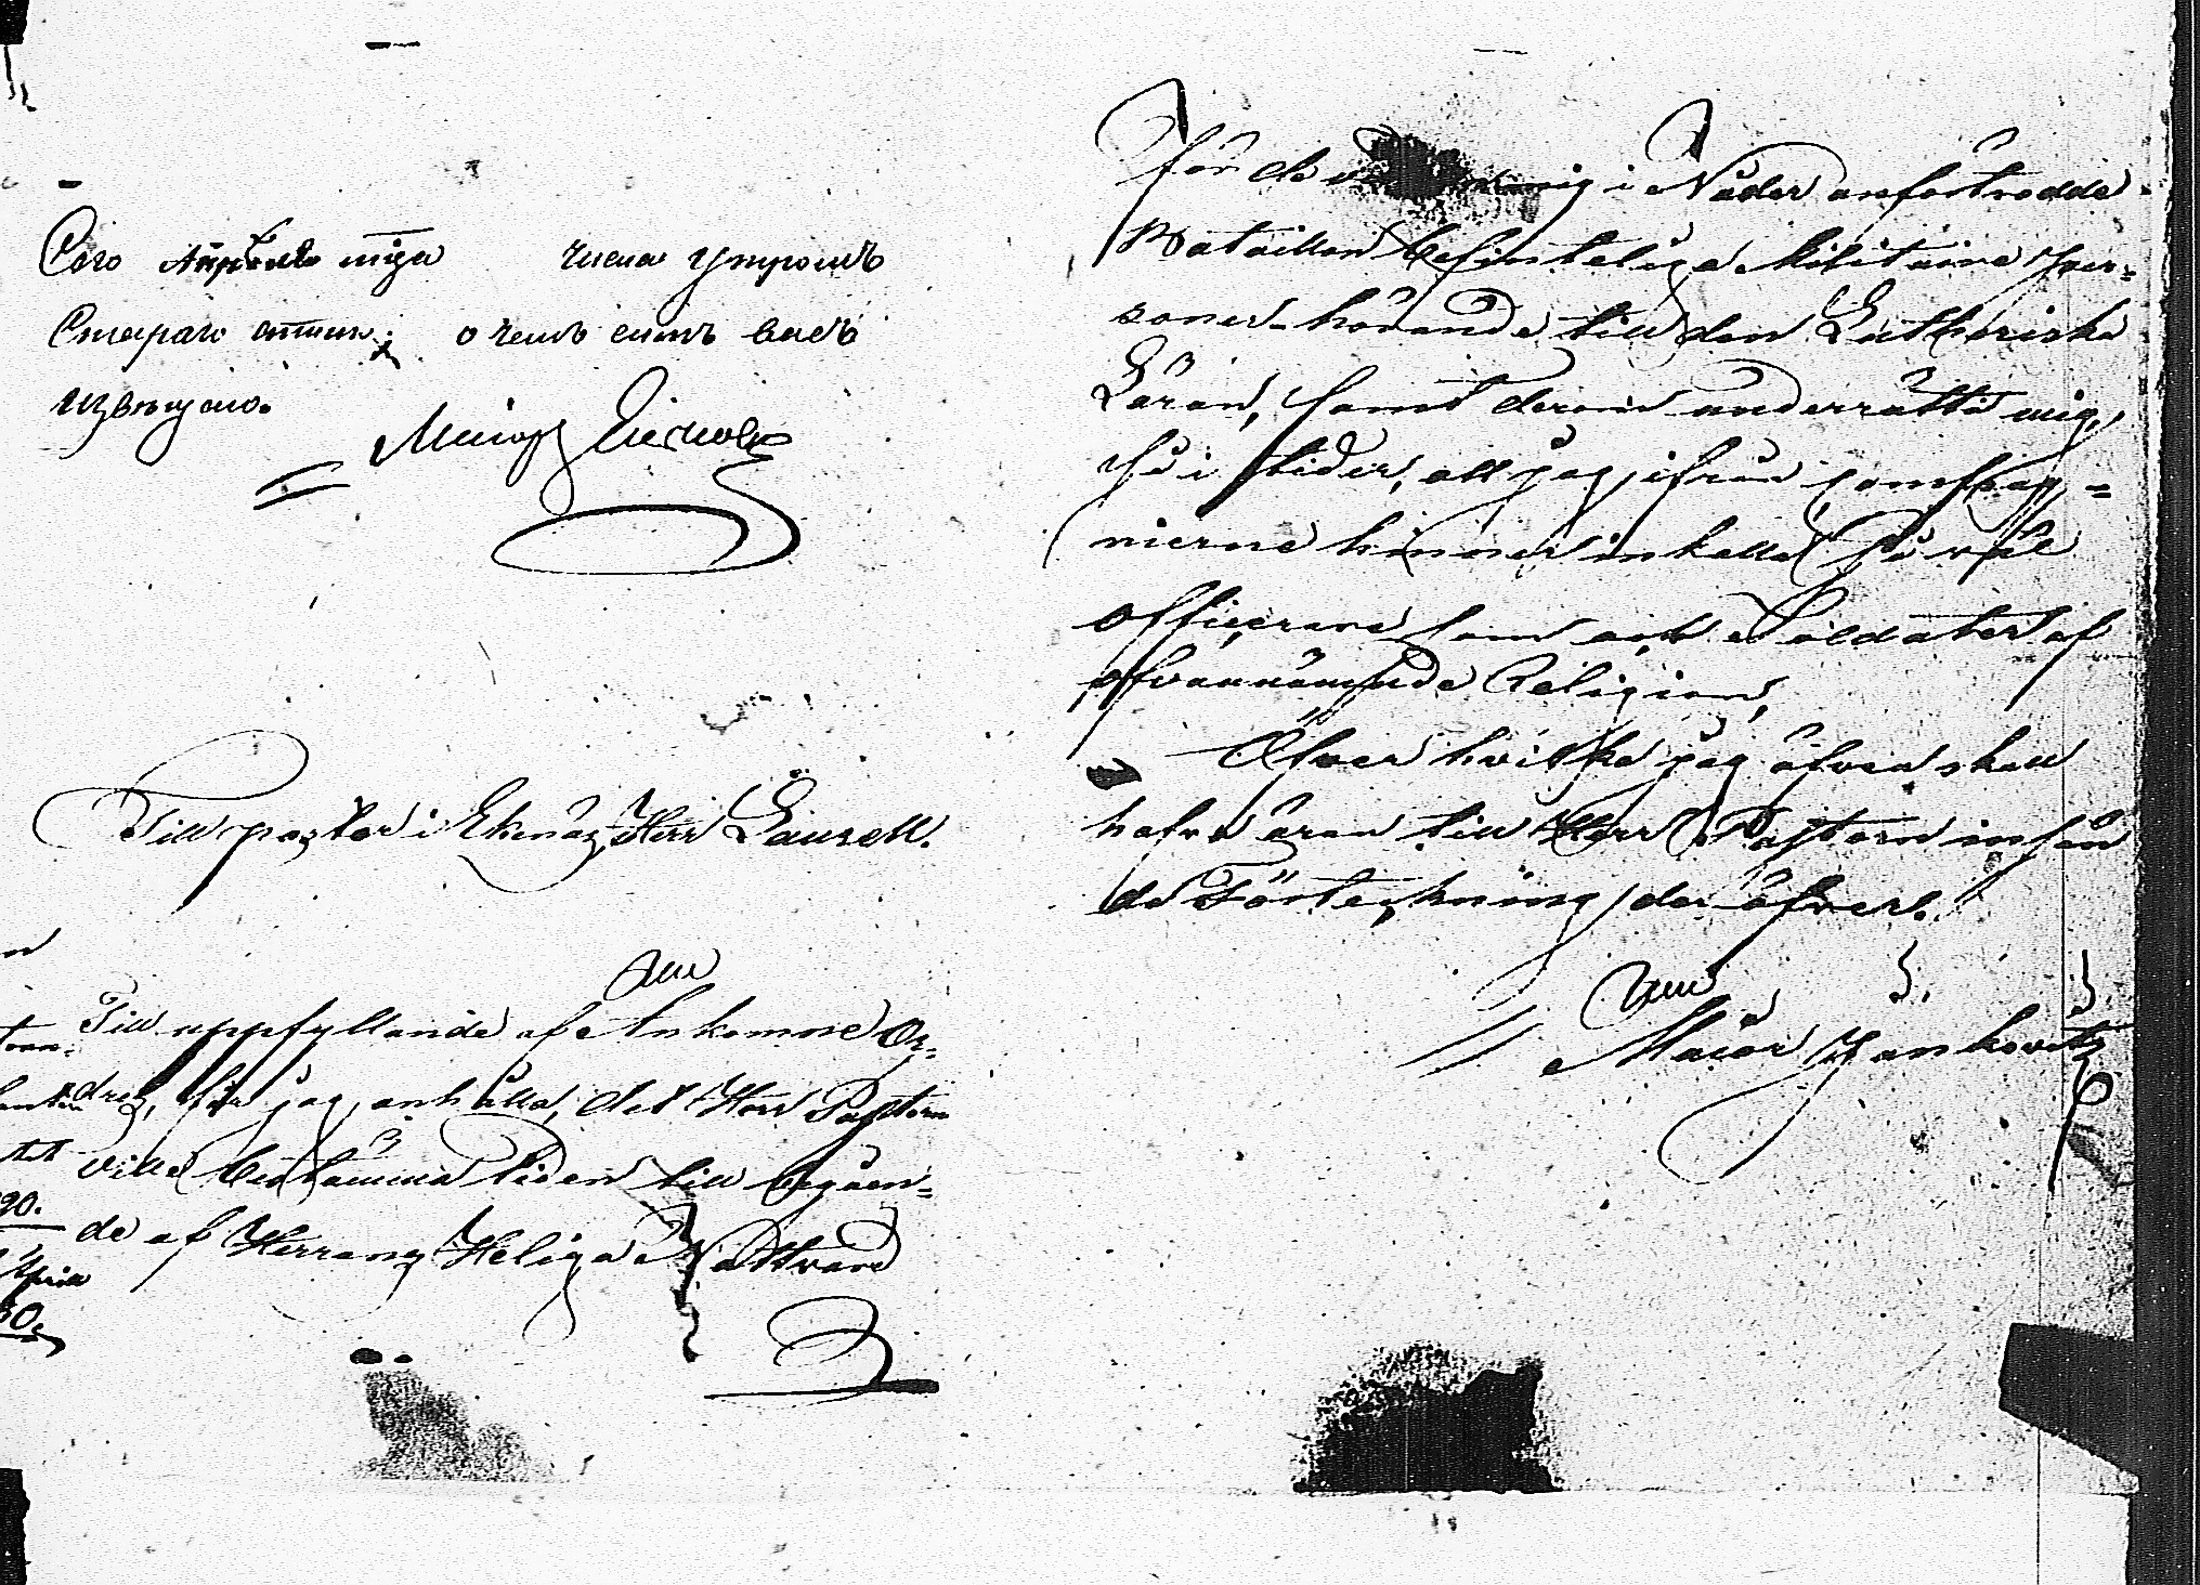 Сего Апреля
числа утромъ
Стараго стиля; о чемъ симъ васъ
извещаю.
Маиоръ
Till pastor i Ekenäs, Herr Laurell.
Till uppfyllande af Inkomne Or=
dres, får jag anhålla, det Herr Pastorn
ville bestämma tiden till begåen=
de af Herrans Heliga Nattvard
20.
April
för de mig i Nåder anförtrodde
Bataillon befinteliga Militaire Per=
soner hörande till den Lutheriska
Läran, samt derom underrätta mig,
så i tider, att jag ifrån Compag=
nierne hinner inkalla så väl
officerare som och Soldater af
ofvannämnde Religion,
Öfver hvilka jag äfven skall
hafva äran till Herr Pastorn insän
da Förteckning der öfver.
Maior Jankovitz